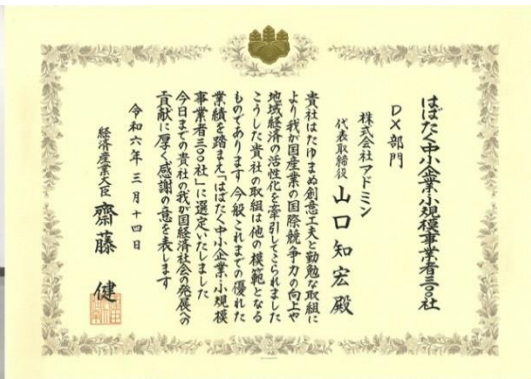 はばたく中小企業・小規模事業者三〇〇社
DX部門
株式会社アドミン
代表取締役 山口知宏 殿
貴社はたゆまぬ創意工夫と勤勉な取組に
より我が国産業の国際競争力の向上や
地域経済の活性化を牽引してこられました
こうした貴社の取組は他の模範となる
ものであります 今般これまでの優れた
業績を踏まえ「はばたく中小企業・小規模
事業者三〇〇社」に選定いたしました
今日までの貴社の我が国経済社会の発展への
貢献に厚く感謝の意を表します
令和六年三月十四日
経済産業大臣 齋藤 健